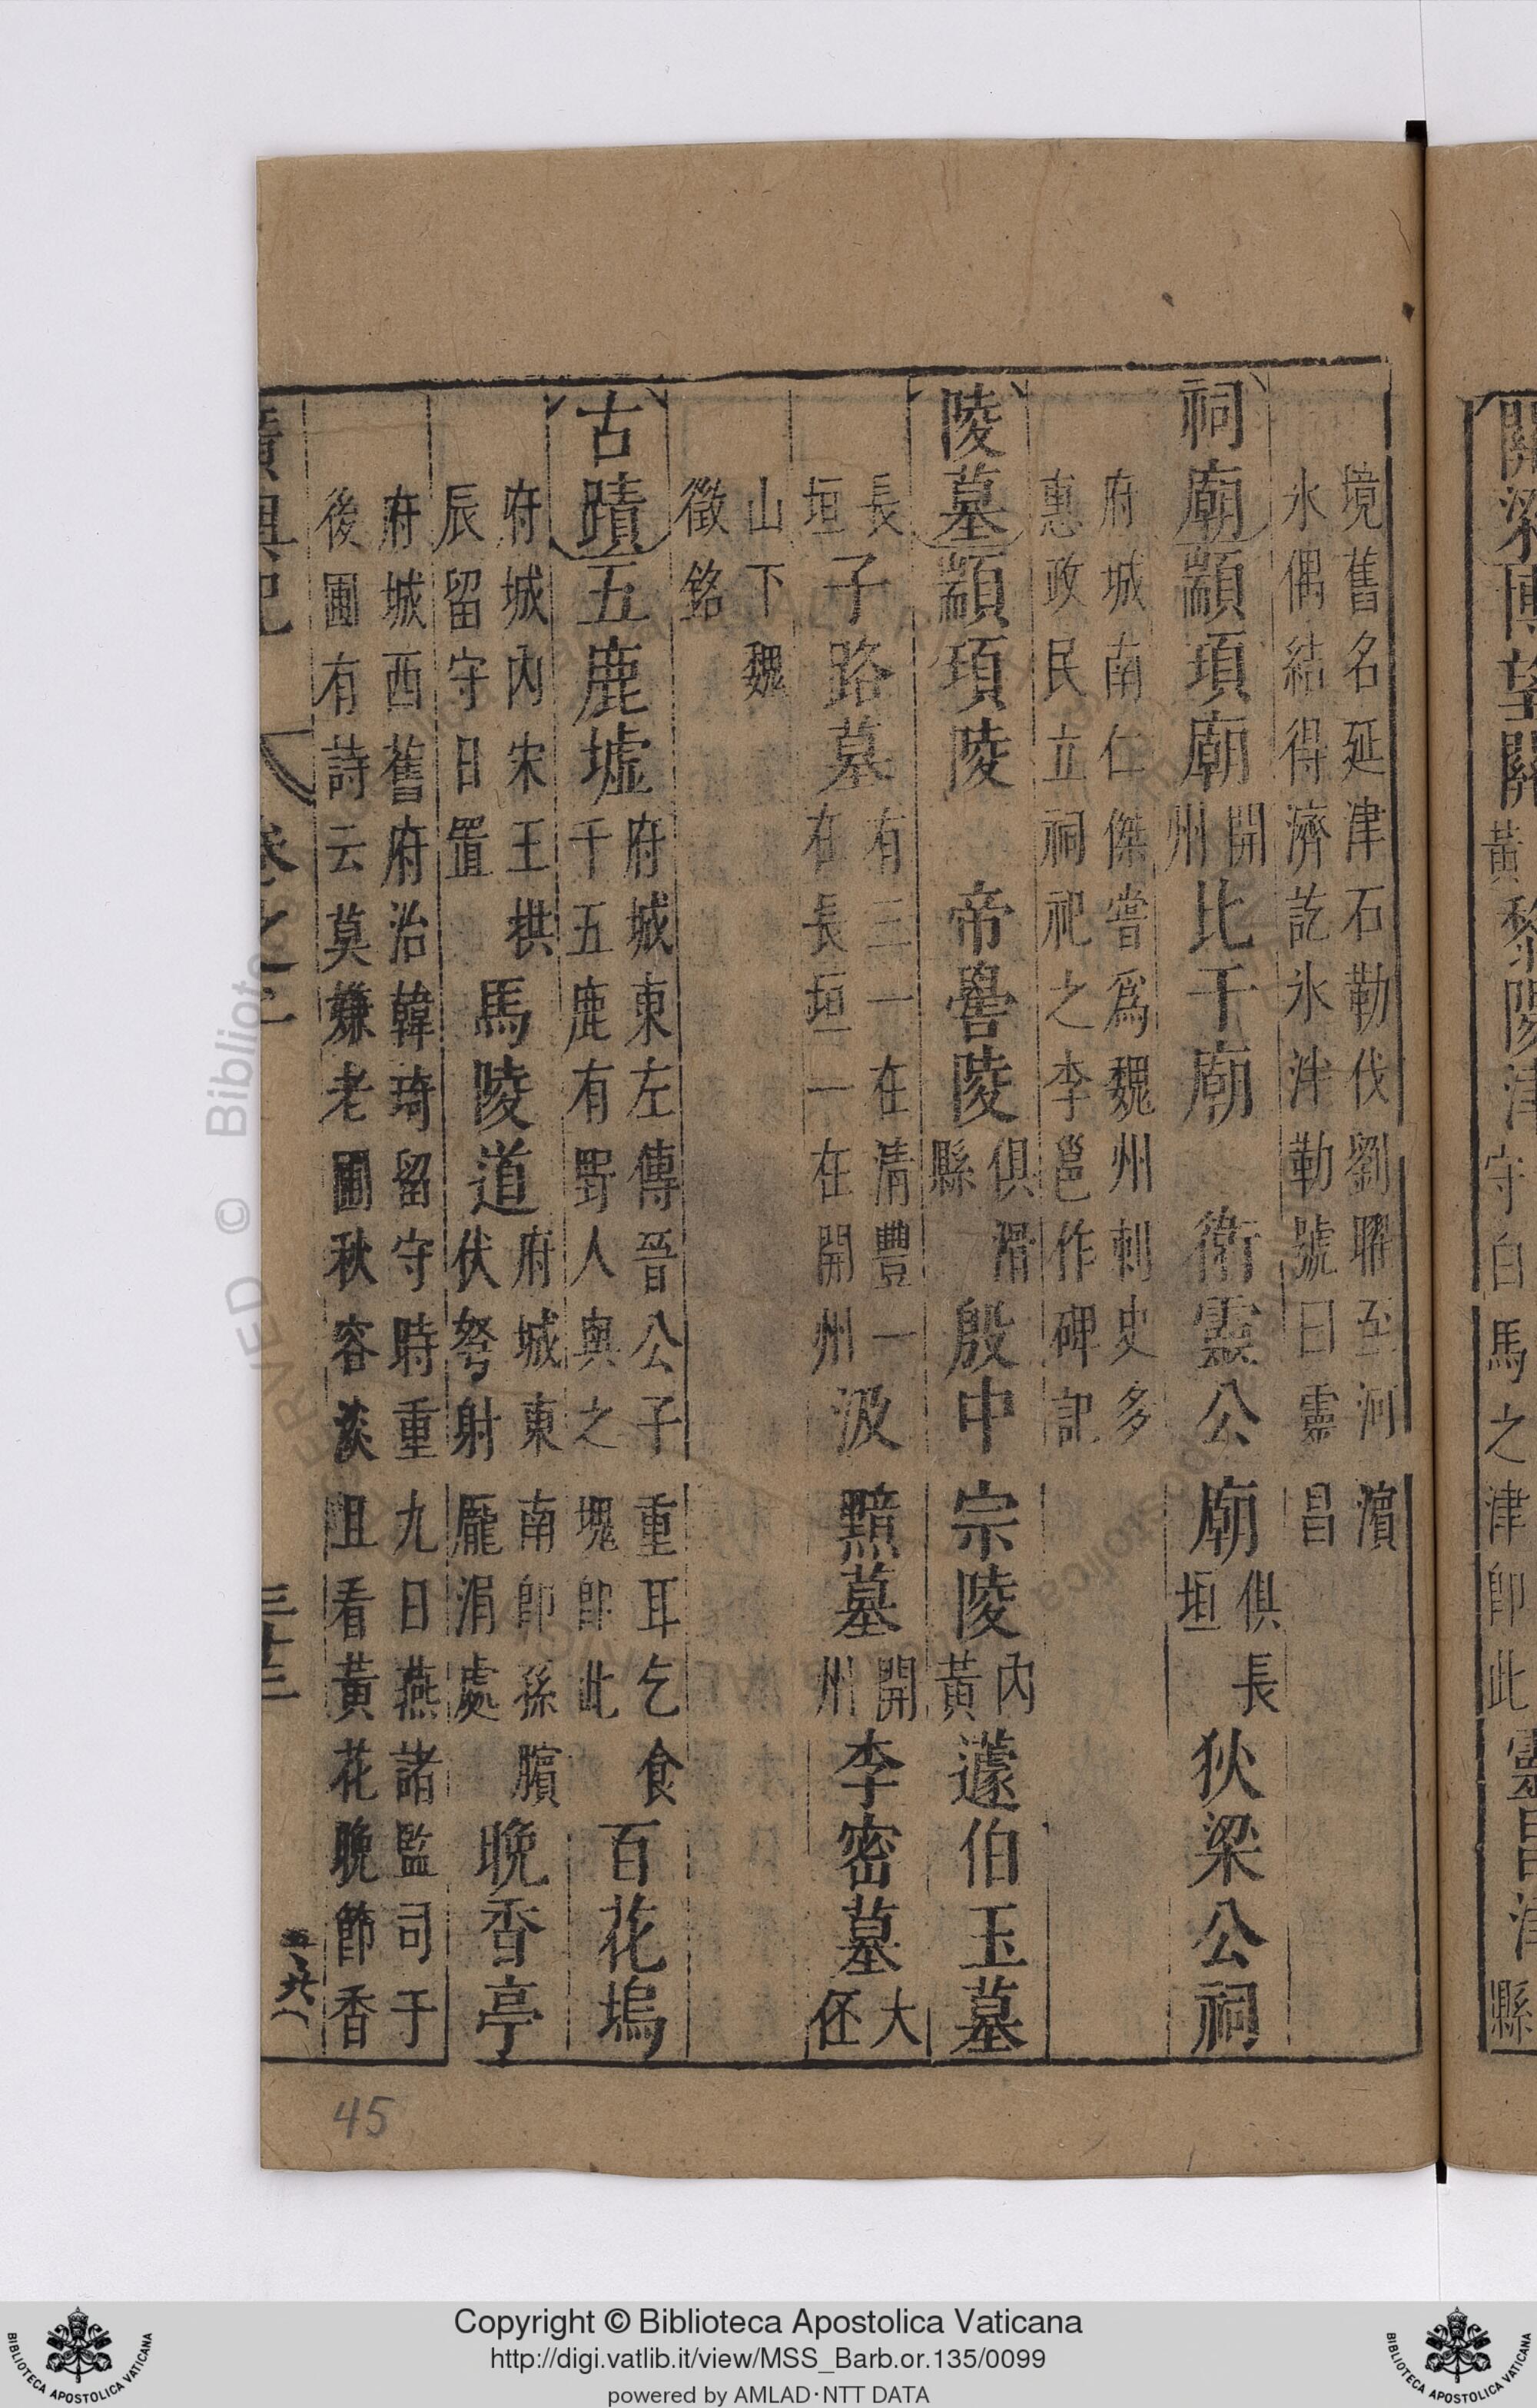 關梁博望關黃黎陽津守白馬之津卽此靈昌津縣
境舊名延津石勒伐劉曜至河濵
氷偶結得濟訖氷泮勒號曰靈昌
祠廟顓頊廟開州比干廟 衛靈公廟俱長垣狄梁公祠
府城南仁傑嘗爲魏州刺史多
惠政民立祠祀之李邕作碑記
陵墓顓頊陵 帝嚳陵俱滑縣殷中宗陵內黃蘧伯玉墓
長垣子路墓有三一在清豐一在長垣一在開州汲黯墓開州李密墓大伾
山下魏
徵銘
古蹟五鹿墟府城東左傳晉公子重耳乞食千五鹿有野人與之塊卽此百花塢
府城內宋王拱辰留守日置馬陵道府城東南卽孫臏伏弩射龐涓處晚香亭
府城西舊府治韓琦留守時重九日燕諸監司于
後圃有詩云莫嫌老圃秋容淡且看黃花晚節香
廣輿記 卷之一 三十三
45
Copyright © Biblioteca Apostolica Vaticana
http://digi.vatlib.it/view/MSS_Barb.or.135/0099
powered by AMLAD·NTT DATA
BIBLIOTECA APOSTOLICA VATICANA
BIBLIOTECA APOSTOLICA VATICANA